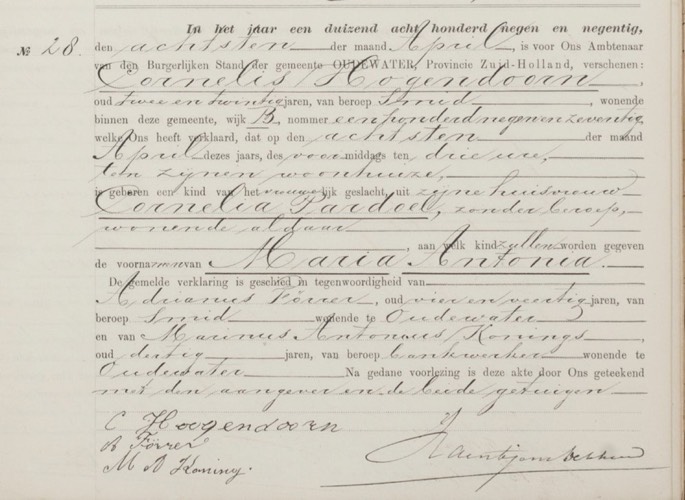 In het jaar een duizend acht honderd negen en negentig,
№ 28. den achtsten der maand April, is voor Ons Ambtenaar
van den Burgerlijken Stand der gemeente OUDEWATER, Provincie Zuid-Holland, verschenen:
Cornelis Hogendoorn,
oud twee en twintig jaren, van beroep Smid, wonende
binnen deze gemeente, wijk B, nommer een honderd negen en zeventig
welke Ons heeft verklaard, dat op den achtsten der maand
April dezes jaars, des voormiddags ten drie ure,
ten zijnen woonhuize,
is geboren een kind van het vrouwelijk geslacht, uit zijne huisvrouw
Cornelia Pardoel, zonder beroep,
wonende aldaar
, aan welk kind zullen worden gegeven
de voornamen van Maria Antonia.
De gemelde verklaring is geschied in tegenwoordigheid van
Adrianus Förrer, oud vier en veertig jaren, van
beroep Smid wonende te Oudewater
en van Marinus Antonius Konings,
oud dertig jaren, van beroep bankwerker wonende te
Oudewater Na gedane voorlezing is deze akte door Ons geteekend
met den aangever en de beide getuigen
C Hoogendoorn
A Förrer
M A Koning.